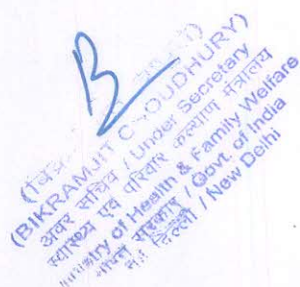 (BIKRAMJIT CHOUDHURY)
अवर सचिव / Under Secretary
स्वास्थ्य एवं परिवार कल्याण मंत्रालय
Ministry of Health & Family Welfare
भारत सरकार / Govt. of India
नई दिल्ली / New Delhi